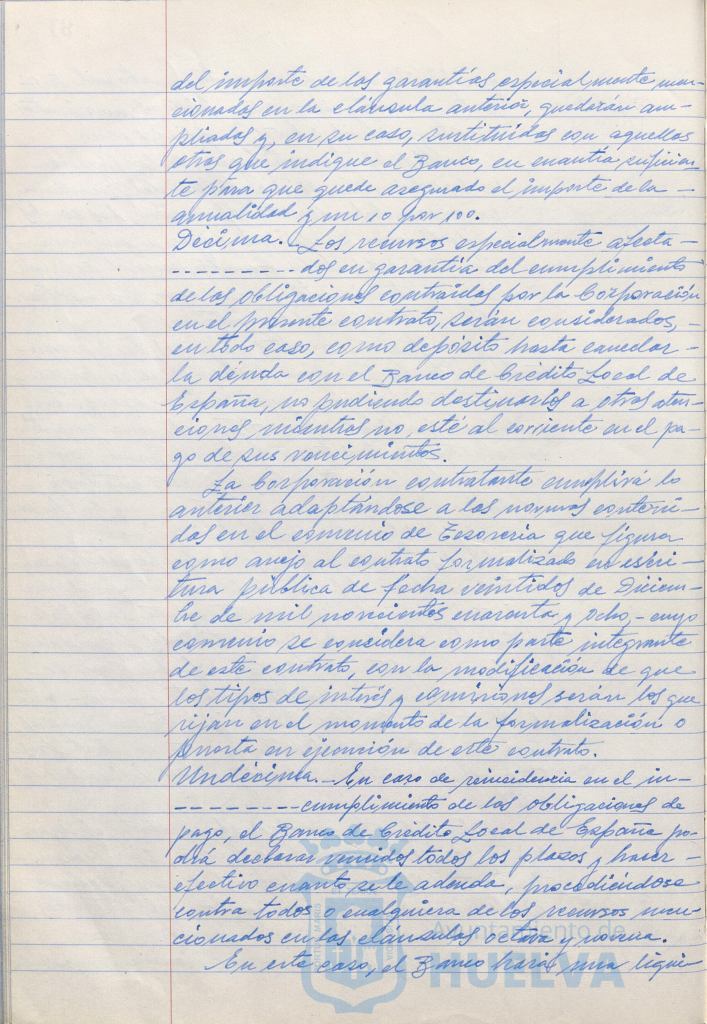 del importe de las garantías especialmente men-
cionadas en la cláusula anterior, quedarán am-
pliadas y, en su caso, sustituidas con aquellas
otras que indique el Banco, en cuantía suficien-
te para que quede asegurado el importe de la -
anualidad y un 10 por 100.
Décima. - Los recursos especialmente afecta-
---------- dos en garantía del cumplimiento
de las obligaciones contraidas por la Corporación
en el presente contrato, serán considerados, -
en todo caso, como depósito hasta cancelar -
la deuda con el Banco de Crédito Local de
España, no pudiendo destinarlos a otras aten-
ciones mientras no, esté al corriente en el pa-
go de sus vencimientos.
La Corporación contratante cumplirá lo
anterior adaptándose a las normas conteni-
das en el convenio de Tesorería que figura
como anejo al contrato formalizado en escri-
tura pública de fecha veintidos de Diciem-
bre de mil novecientos cuarenta y ocho, - cuyo
convenio se considera como parte integrante
de este contrato, con la modificación de que
los tipos de interés y comisiones serán los que
rijan en el momento de la formalización o
puesta en ejecución de este contrato.
Undécima. - En caso de reincidencia en el in-
---------- cumplimiento de las obligaciones de
pago, el Banco de Crédito Local de España po-
drá declarar vencidos todos los plazos y hacer -
efectivo cuanto se le adeuda, procediéndose
contra todos o cualquiera de los recursos men-
cionados en las cláusulas octava y novena.
En este caso, el Banco hará una liqui-
Ayuntamiento de
HUELVA